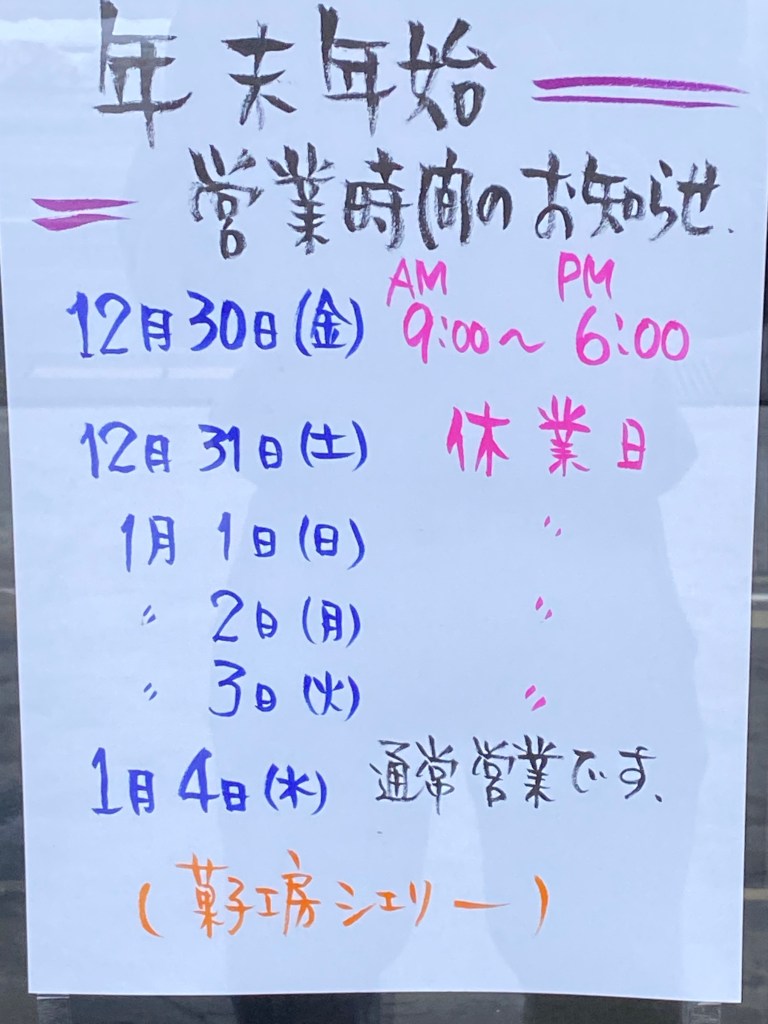 年末年始
営業時間のお知らせ.
AM PM
12月30日(金) 9:00~ 6:00
12月31日(土) 休業日
1月1日(日) 〃
〃 2日(月) 〃
〃 3日(火) 〃
1月4日(水) 通常営業です.
(菓子工房シェリー)